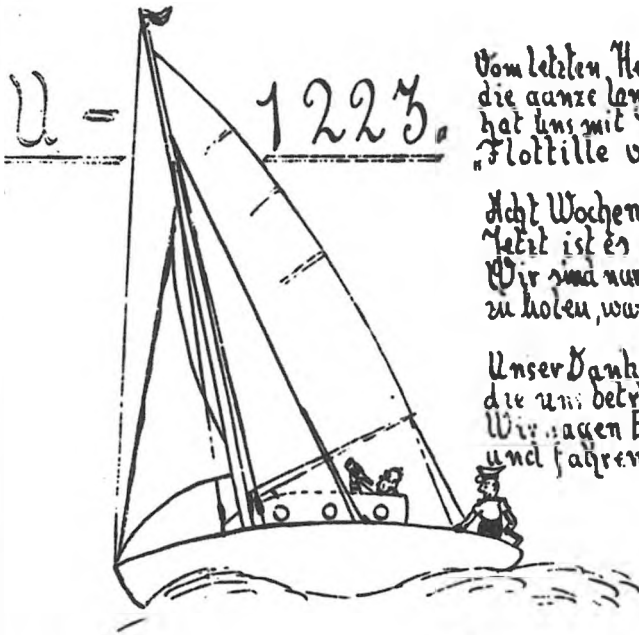 U = 1223.
Vom letzten He
die ganze lan
hat uns mit
„Flottille v
Acht Wochen
Jetzt ist es
Wir sind nun
zu holen, wa
Unser Dank
die uns betr
Wir sagen
und fahren